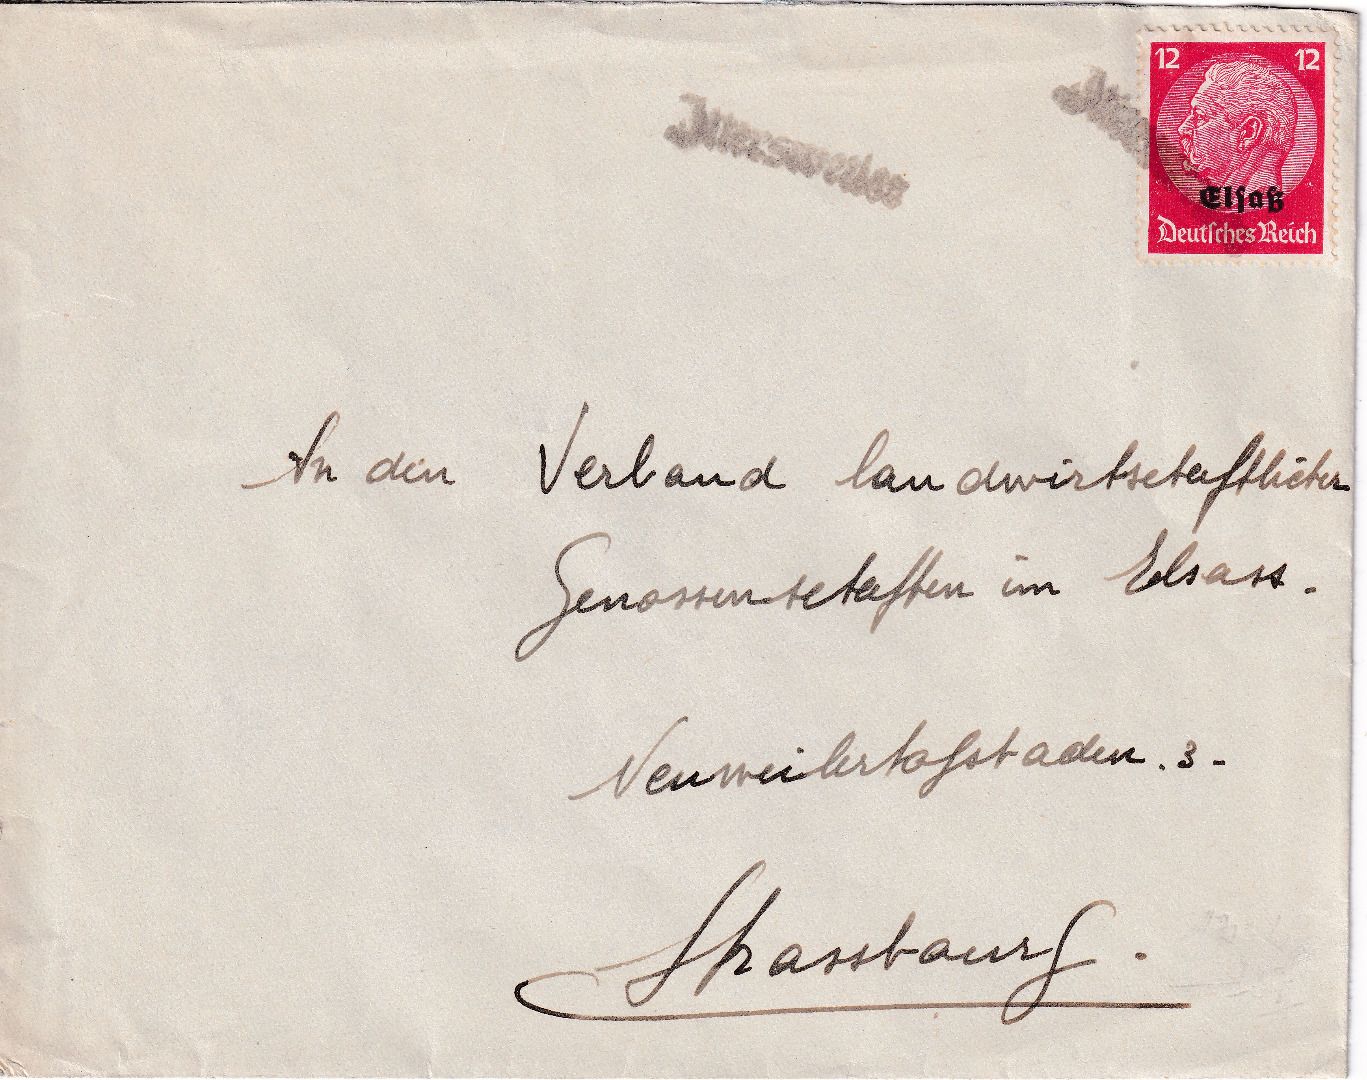 12 12
Elsaß
Deutsches Reich
An den Verband landwirtschaftlicher
Genossenschaften im Elsass.
Neuweilerhofstaden. 3-
Strassbourg.